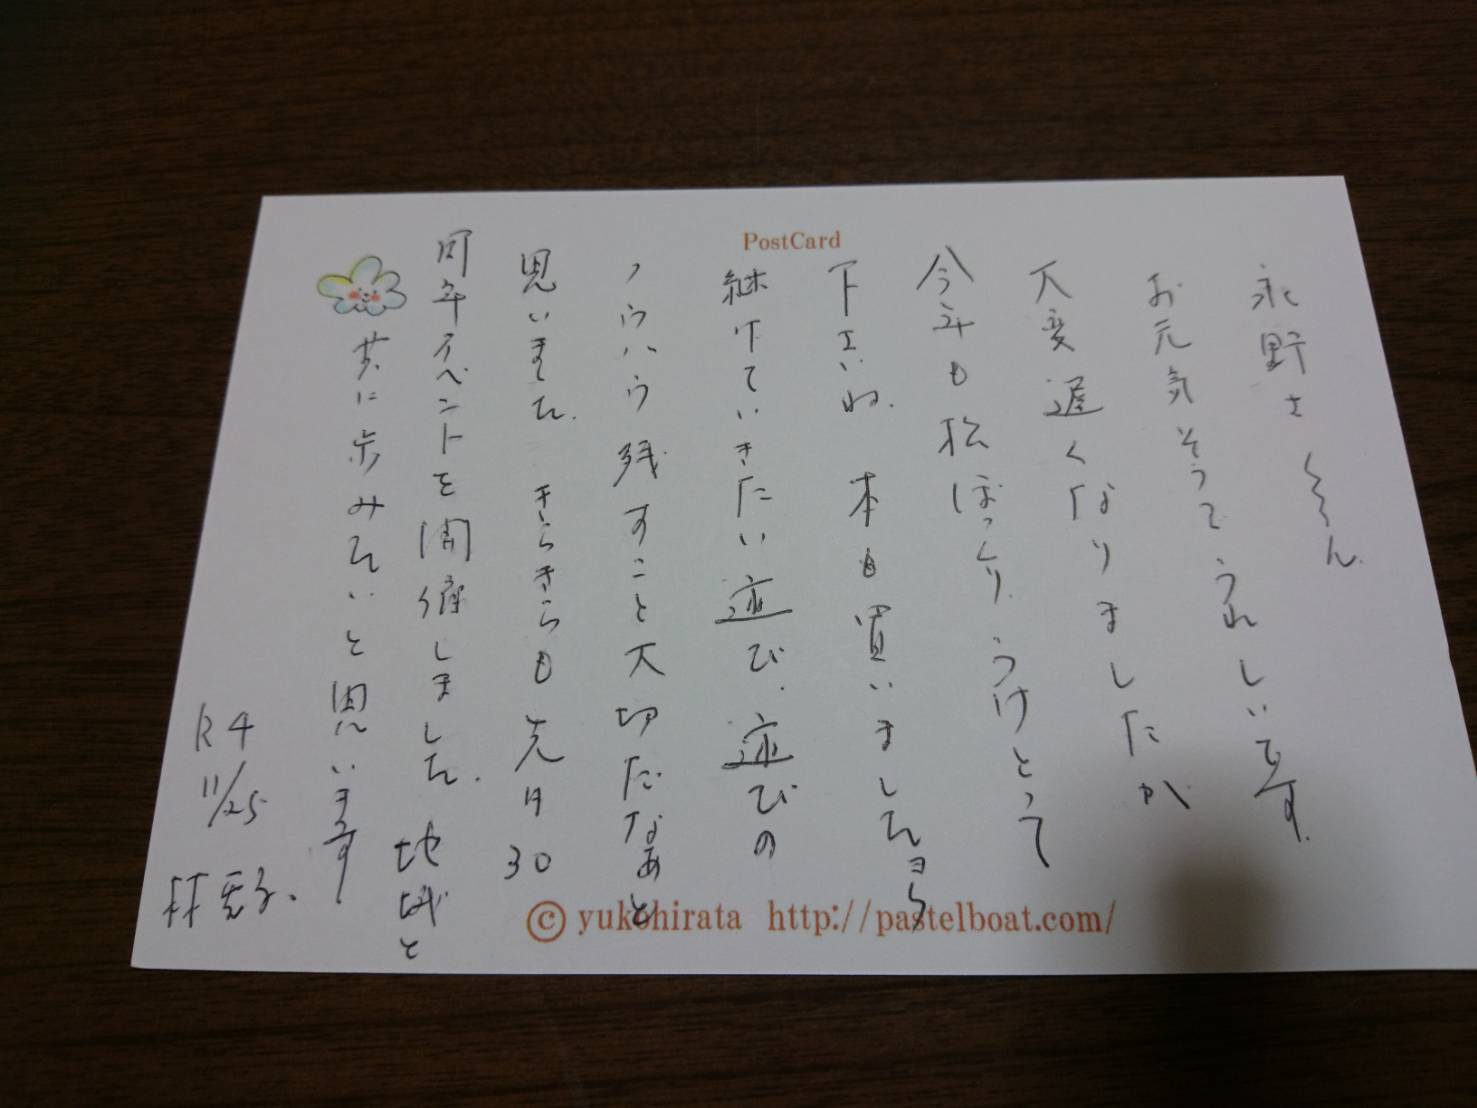 PostCard
永野さ〜ん
お元気そうでうれしいです。
大変遅くなりましたが
今年も松ぼっくり、うけとって
下さいね。本も買いましたヨ
継けていきたい遊び、遊びの
ノウハウ残すこと大切だなあと
思いました。きらきらも先月30
周年イベントを開催しました。地域と
共に歩みたいと思います
R4
11/25
林
© yukohirata http://pastelboat.com/